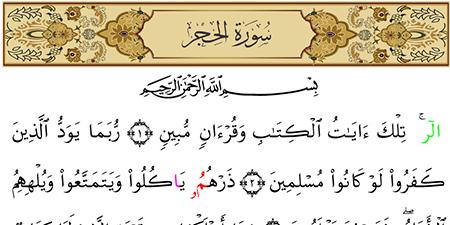 سُورَةُ الحِجر
بِسْمِ اللَّهِ الرَّحْمَٰنِ الرَّحِيمِ
الٓر ۚ تِلْكَ ءَايَٰتُ الْكِتَٰبِ وَقُرْءَانٍ مُّبِينٍ ﴿١﴾ رُّبَمَا يَوَدُّ الَّذِينَ
كَفَرُوا۟ لَوْ كَانُوا۟ مُسْلِمِينَ ﴿٢﴾ ذَرْهُمُۥ يَاكُلُوا۟ وَيَتَمَتَّعُوا۟ وَيُلْهِهِمُ